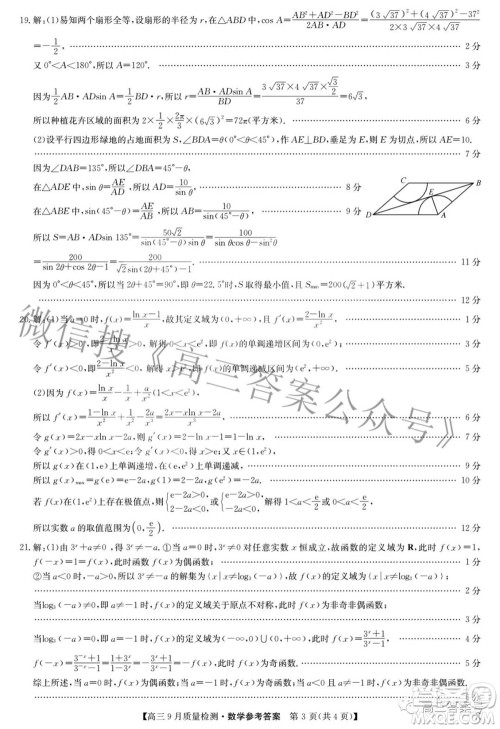 19. 解:(1)易知两个扇形全等,设扇形的半径为 r,在△ABD 中,cos A=(AB²+AD²-BD²)/(2AB·AD)=((3√37)²+(4√37)²-37²)/(2×3√37×4√37)
=-1/2. 2 分
又 0°<A<180°,所以 A=120°. 3 分
因为 1/2 AB·ADsin A=1/2 BD·r,所以 r=AB·ADsin A/BD=(3√37×4√37×√3/2)/37=6√3.
所以种植花卉区域的面积为 2×1/2×2π/3×(6√3)²=72π(平方米). 6 分
(2)设平行四边形绿地的占地面积为 S,∠BDA=θ(0°<θ<45°),作 AE⊥BD,垂足为 E,所以 AE=10.
7 分
因为∠DAB=135°,所以∠DBA=45°-θ.
在△ADE 中,sin θ=AE/AD,所以 AD=10/sin θ. 8 分
在△ABE 中,sin(45°-θ)=AE/AB,所以 AB=10/sin(45°-θ). 9 分
B
E
D
A
所以 S=AB·ADsin 135°=50√2/(sin(45°-θ)sin θ)=100/(sin θcos θ-sin²θ)
=200/(sin 2θ+cos 2θ-1)=200/(√2sin(2θ+45°)-1). 11 分
因为 0°<θ<45°,所以当 2θ+45°=90°,即 θ=22.5°时,S 取得最小值,且 Smin=200(√2+1)平方米.
12 分
20. 解:(1)当 a=0 时,f(x)=(ln x-1)/x,故其定义域为(0,+∞),且 f′(x)=(2-ln x)/x².
令 f′(x)>0,即 f(x)的单调递增区间为(0,e²). 3 分
令 f′(x)<0,即 f(x)的单调递减区间为(e²,+∞). 4 分
(2)因为 f(x)=ln x/x-1/x+a/x²(1<x<e²),
所以 f′(x)=(1-ln x)/x²+1/x²-2a/x³=(2x-xln x-2a)/x³. 5 分
令 g(x)=2x-xln x-2a,则 g′(x)=2-(1+ln x)=1-ln x. 6 分
令 g′(x)>0,得 0<x<e,令 g′(x)<0,得 x>e. 7 分
所以 g(x)在(1,e)上单调递增,在(e,e²)上单调递减,
所以 g(x)max=g(e)=e-2a,g(1)=2-2a,g(e²)=-2a. 8 分
若 f(x)在(1,e²)上存在极值,则{e-2a>0, 2-2a<0,或{e-2a>0, -2a<0,所以 1<a<e/2或 0<a<e/2.
所以实数 a 的取值范围为(0,e/2). 12 分
21. 解:(1)由 3ˣ+a≠0,得 3ˣ≠-a. ①当 a=0 时,3ˣ≠-a 对任意实数 x 恒成立,故函数的定义域为 R,此时 f(x)=1,
f(-x)=1=f(x),此时函数 f(x)为偶函数; 1 分
②当 a<0 时,-a>0,则不等式 3ˣ≠-a 的解集为{x|x≠log₃(-a)}.
当log₃(-a)≠0,即 a≠-1 时,f(x)的定义域关于原点不对称,故此时 f(x)为非奇非偶函数;
3 分
当log₃(-a)=0,即 a=-1 时,f(x)的定义域为(-∞,0)∪(0,+∞),且 f(x)=(3ˣ+1)/(3ˣ-1),
f(-x)=(3⁻ˣ+1)/(3⁻ˣ-1)=(1+3ˣ)/(1-3ˣ)=-f(x),故此时函数 f(x)为奇函数. 4 分
综上所述,当 a=0 时,f(x)为偶函数;当 a=-1 时,f(x)为奇函数;当 a<0 且 a≠-1 时,f(x)为非奇非偶函数.
5 分
【高三 9 月质量检测·数学参考答案 第 3 页(共 4 页)】
微信搜《高三答案公众号》